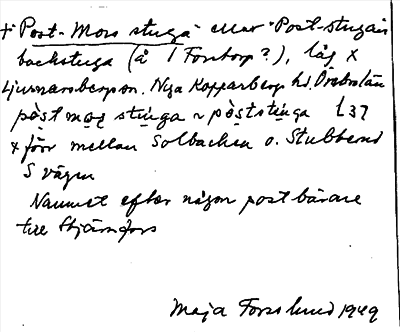 † Post-Mors stuga eller Post-stugan
backstuga (å 1 Fontorp?), låg x
Ljusnarsbergs sn. Nya Kopparbergs hd. Örebro län
pòst mo̱r̲ stu̱ga ~ pòststu̱ga L 37
x förr mellan Solbacken o. Stubbend
S vägen
Namnet efter någon postbärare
till Stjärnfors
Maja Forsslund 1949